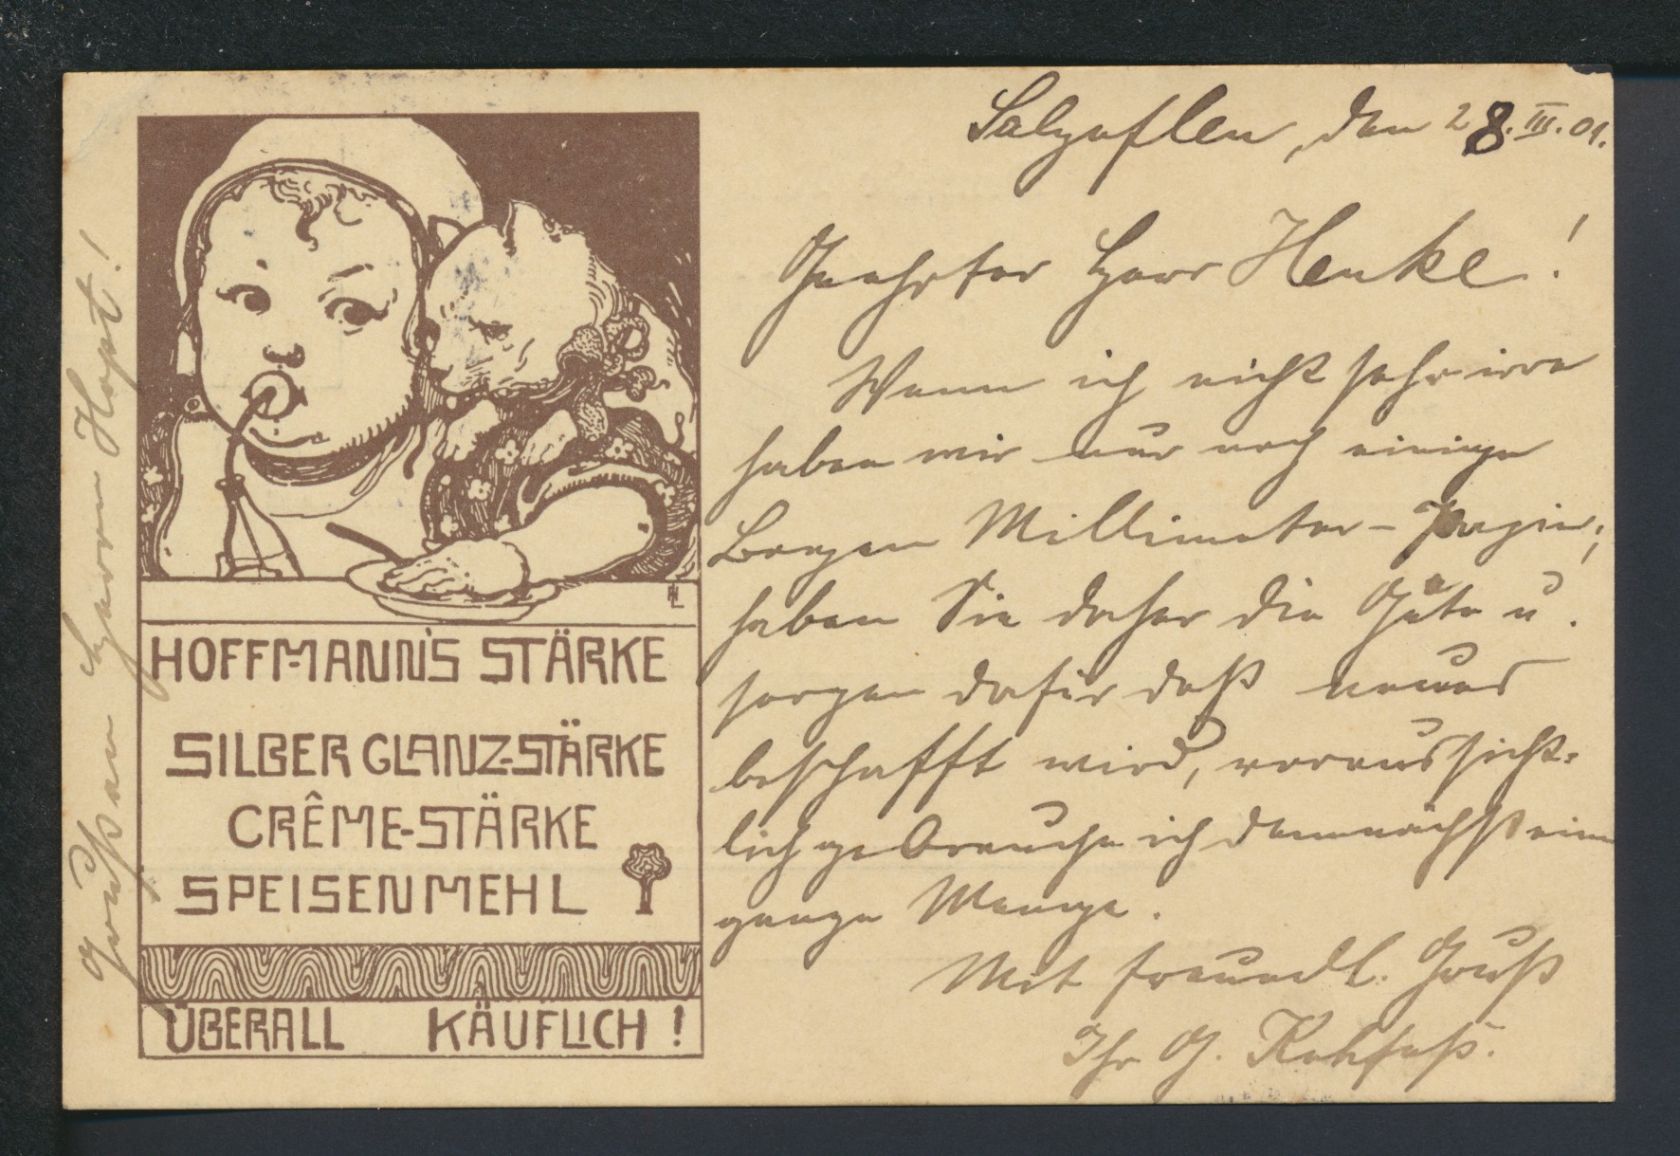 Salzuflen, den 28. III. 01.
Geehrter Herr Henke!
Wenn ich nicht sehr irre
haben wir nur noch einige
Bogen Millimeter-Papier;
haben Sie daher die Güte u.
sorgen dafür daß neues
beschafft wird, voraussicht-
lich gebrauche ich demnächst eine
ganze Menge.
Mit freundl. Gruß
Ihr G.
Gruß an Herrn Hopt!
HOFFMANN'S STÄRKE
SILBER GLANZ-STÄRKE
CRÊME-STÄRKE
SPEISENMEHL
ÜBERALL KÄUFLICH!